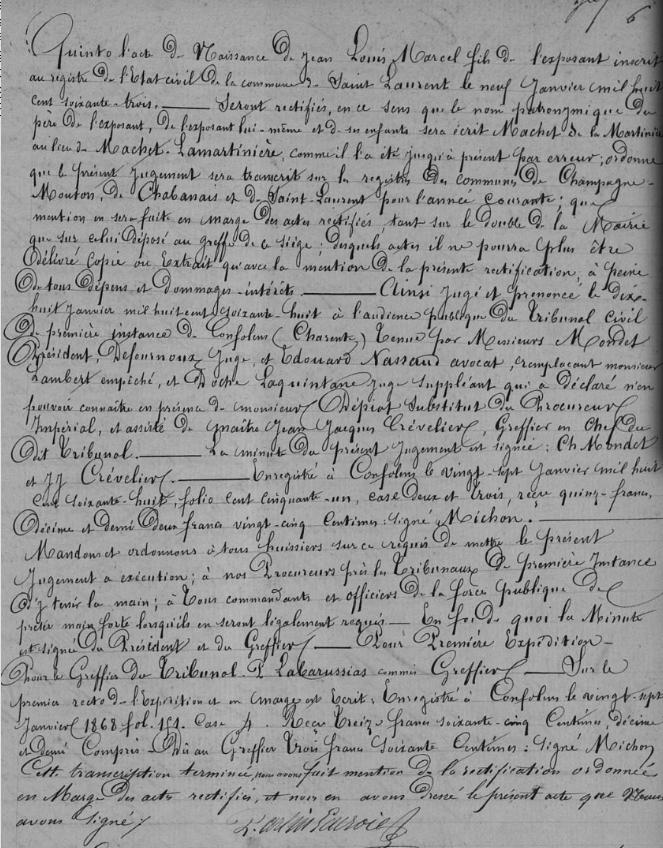 6
Quinto l'acte de Naissance de Jean Louis Marcel fils de l'exposant inscrit
au registre de l'Etat civil de la commune de Saint Laurent le neuf Janvier mil huit
cent soixante-trois. — Seront rectifiés, en ce sens que le nom patronymique du
père de l'exposant, de l'exposant lui-même et de ses enfants sera écrit Machet de la Martinière
au lieu de Machet-Lamartinière, comme il l'a été jusqu'à présent par erreur; ordonne
que le présent Jugement sera transcrit sur les registres des communes de Champagne-
Mouton, de Chabanais et de Saint-Laurent pour l'année courante; que
mention en sera faite en marge des actes rectifiés, tant sur le double de la Mairie
que sur celui déposé au greffe de ce siège; desquels actes il ne pourra plus être
délivré copie ou Extrait qu'avec la mention de la présente rectification, à peine
de tous dépens et dommages-intérêts — Ainsi Jugé et prononcé le dix-
huit Janvier mil huit cent soixante-huit à l'audience publique du Tribunal civil
de première instance de Confolens (Charente,) tenue par Messieurs Mondet
Président, Defournoux Juge, et Edouard Nassaud avocat, remplaçant monsieur
Lambert empêché, et Loche Laquintane Juge Suppléant qui a déclaré n'en
pouvoir connaître en présence de monsieur Dépiot Substitut du Procureur
Impérial, et assisté de maître Jean Jacques Crévelier, Greffier en Chef du
dit Tribunal. — La minute du présent Jugement est signée: Ch Mondet
et JJ Crévelier — Enregistré à Confolens le vingt-sept Janvier mil huit
cent soixante-huit, folio cent cinquante-un, case deux et trois, reçu quinze francs,
décime et demi deux francs vingt-cinq Centimes. Signé Michon. —
Mandons et ordonnons à tous huissiers sur ce requis de mettre le présent
Jugement à exécution; à nos Procureurs près les Tribunaux de première Instance
d'y tenir la main; à Tous commandants et officiers de la force publique de
prêter main forte lorsqu'ils en seront légalement requis — En foi de quoi la Minute
est signée du Président et du Greffier — Pour Première Expédition —
Pour le Greffier du Tribunal P. Labarussias commis Greffier — Sur le
premier recto de l'Expédition et en marge est Ecrit: Enregistré à Confolens le vingt-sept
Janvier 1868 fol. 151. Case 4. Reçu Treize francs soixante-cinq Centimes, décime
et demi Compris — Dû au Greffier Trois francs Soixante Centimes: Signé Michon
Cette transcription terminée, nous avons fait mention de la rectification ordonnée
en Marge des actes rectifiés, et nous en avons dressé le présent acte que Nous
avons signé/